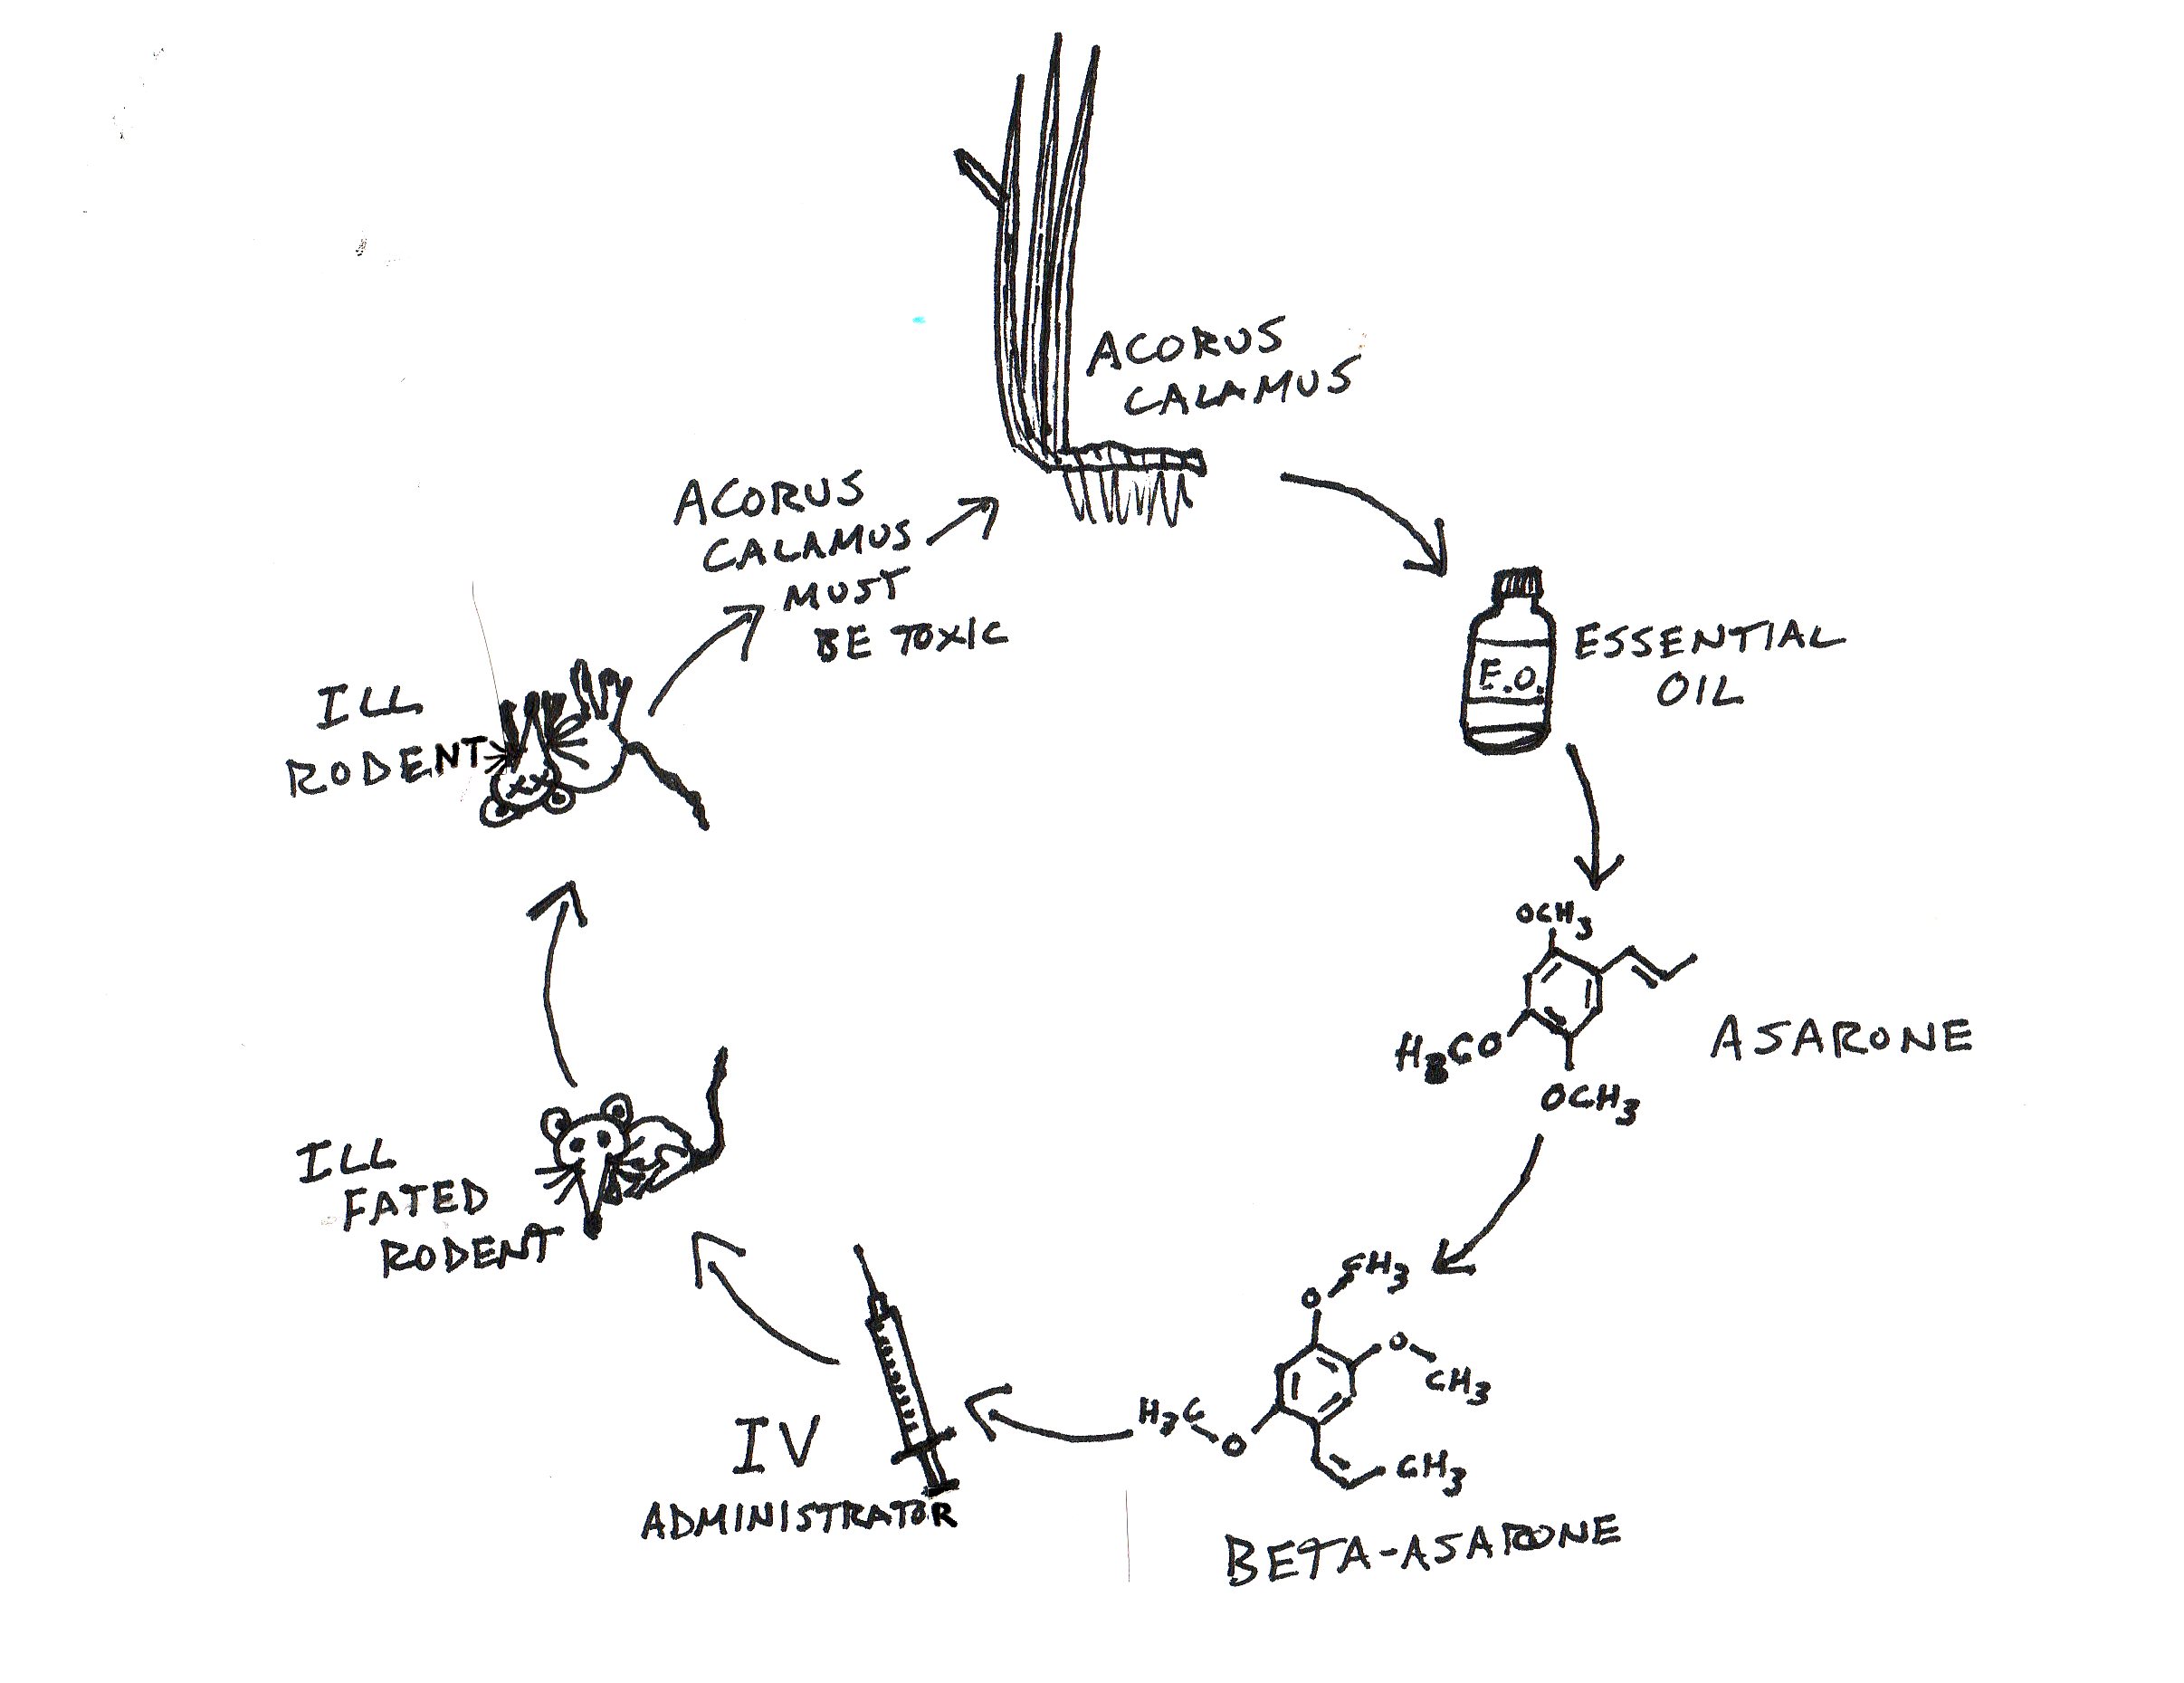 ACORUS
CALAMUS
E.O.
ESSENTIAL
OIL
OCH3
H3CO
OCH3
ASARONE
CH3
O
O
CH3
H3C
O
CH3
BETA-ASARONE
IV
ADMINISTRATOR
ILL
FATED
RODENT
ILL
RODENT
ACORUS
CALAMUS
MUST
BE TOXIC